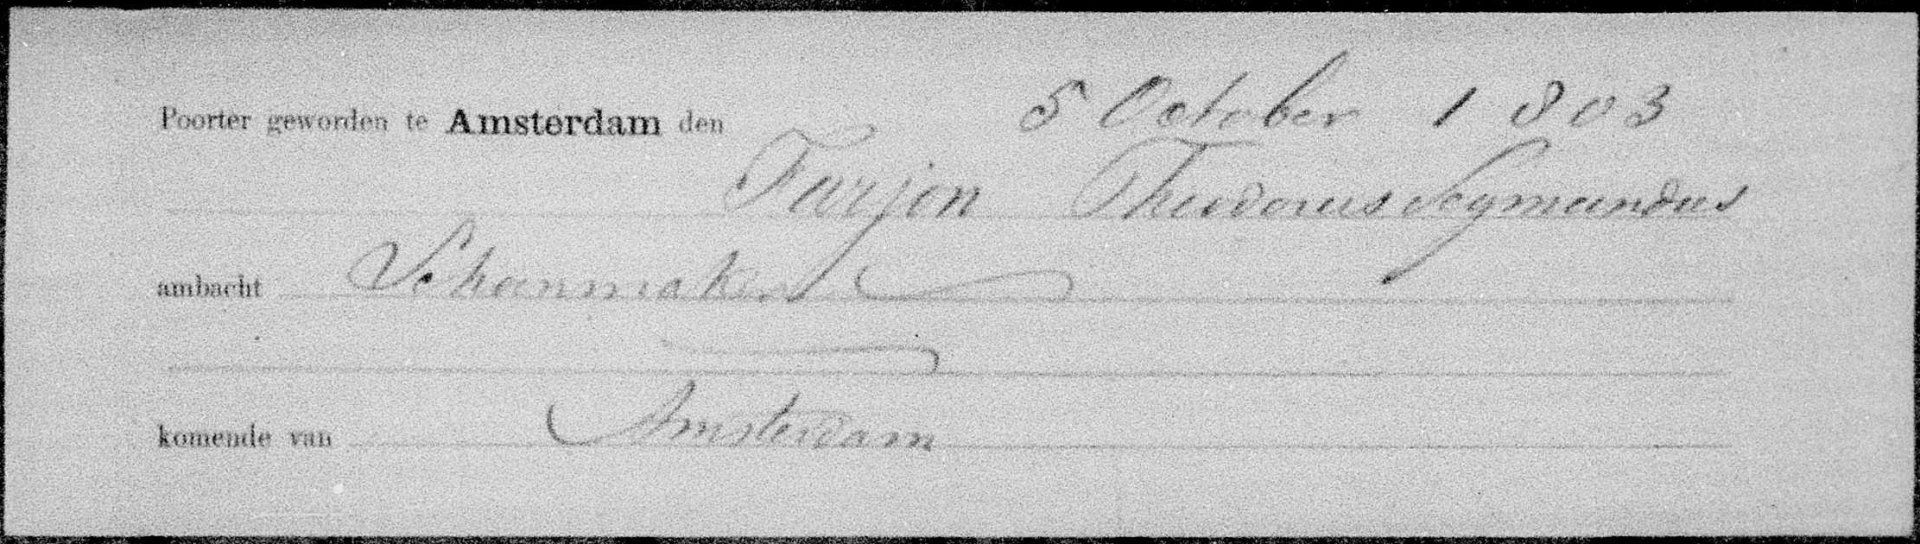 Poorter geworden te Amsterdam den 5 October 1803
Farjon Theodorus Segmundus
ambacht Schoenmaker
komende van Amsterdam